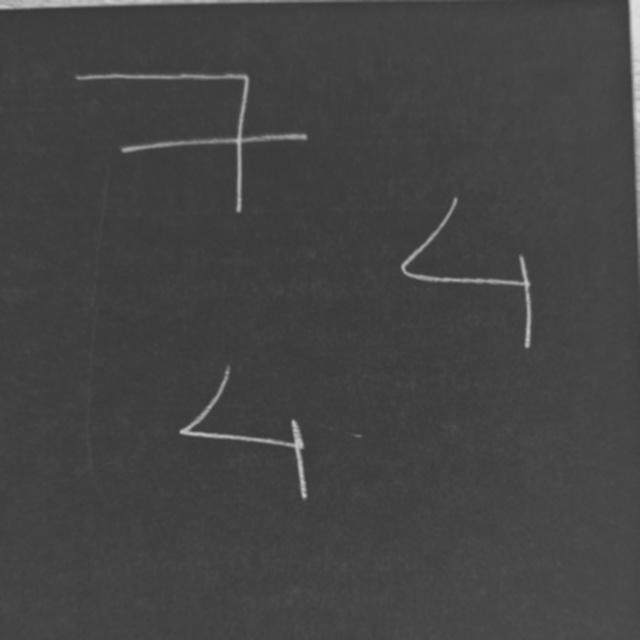 7
4
4